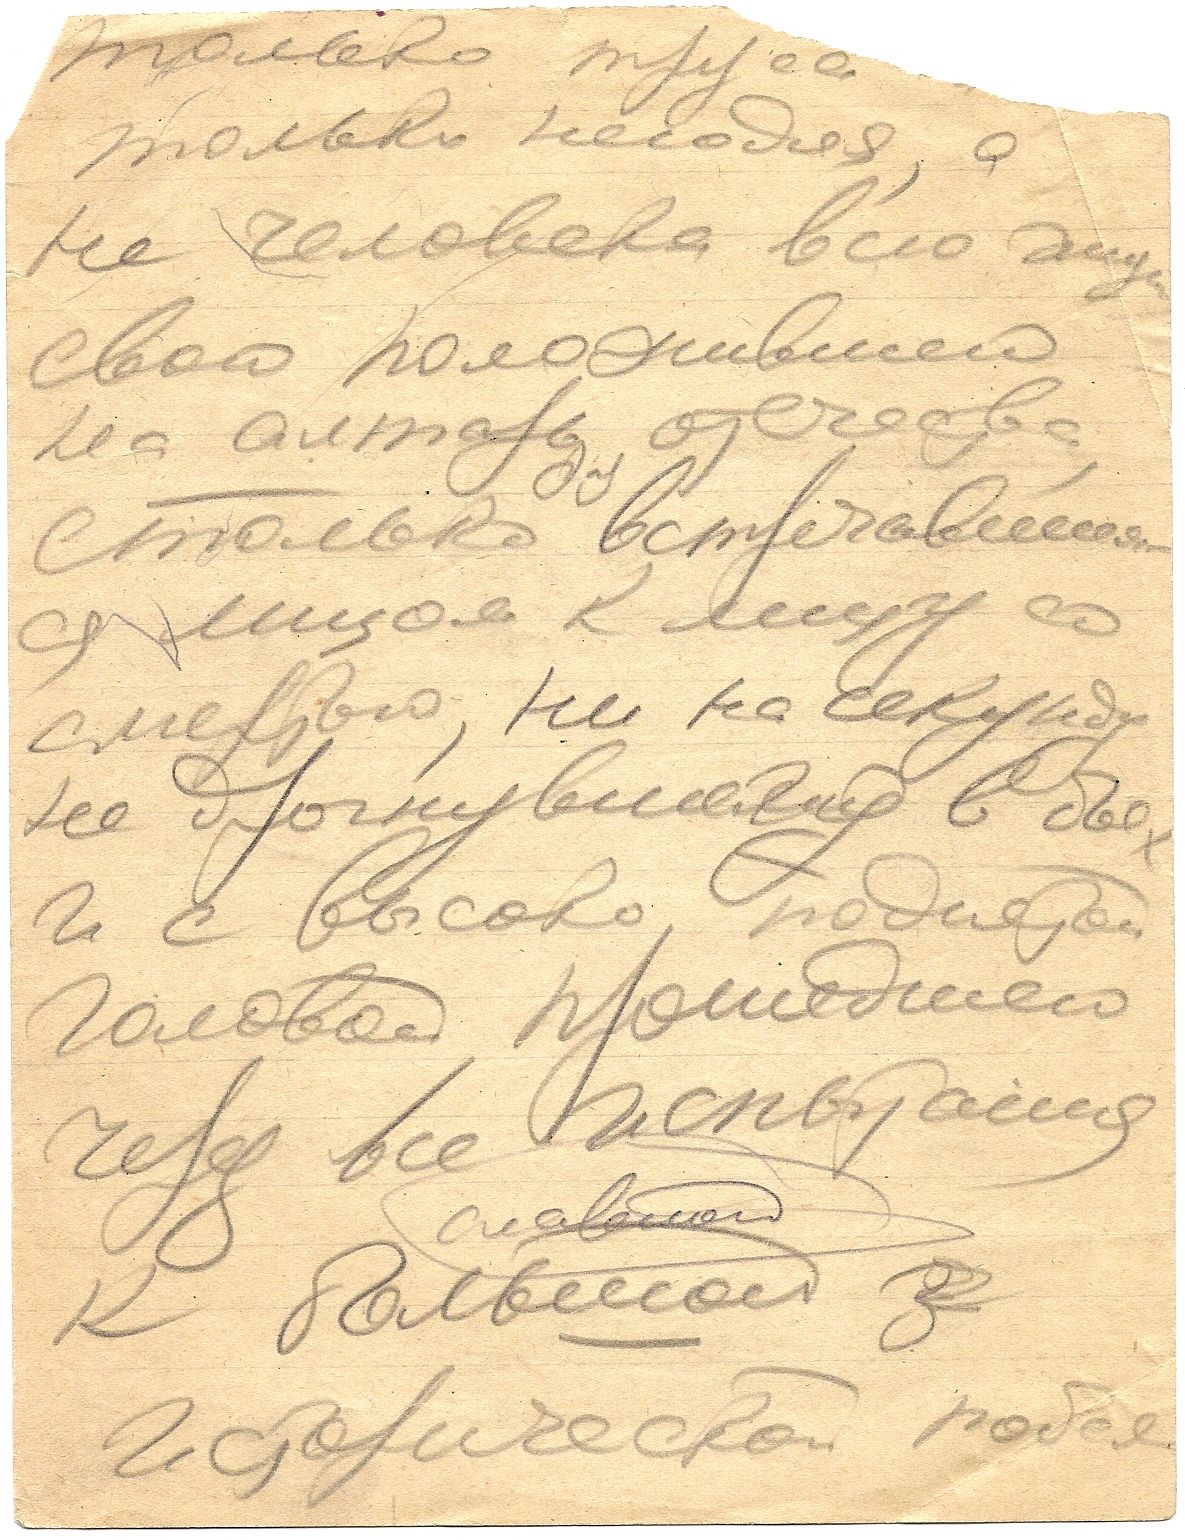 только труса
только негодяя, а
не человека всю жизнь
свою положившего
на алтарь отечества
столько встречавшего-
ся лицом к лицу со
смертью, ни на секунду
не дрогнувшего в боях
и с высоко поднятой
головой прошедшего
через все испытания
славной
к большой
исторической победе